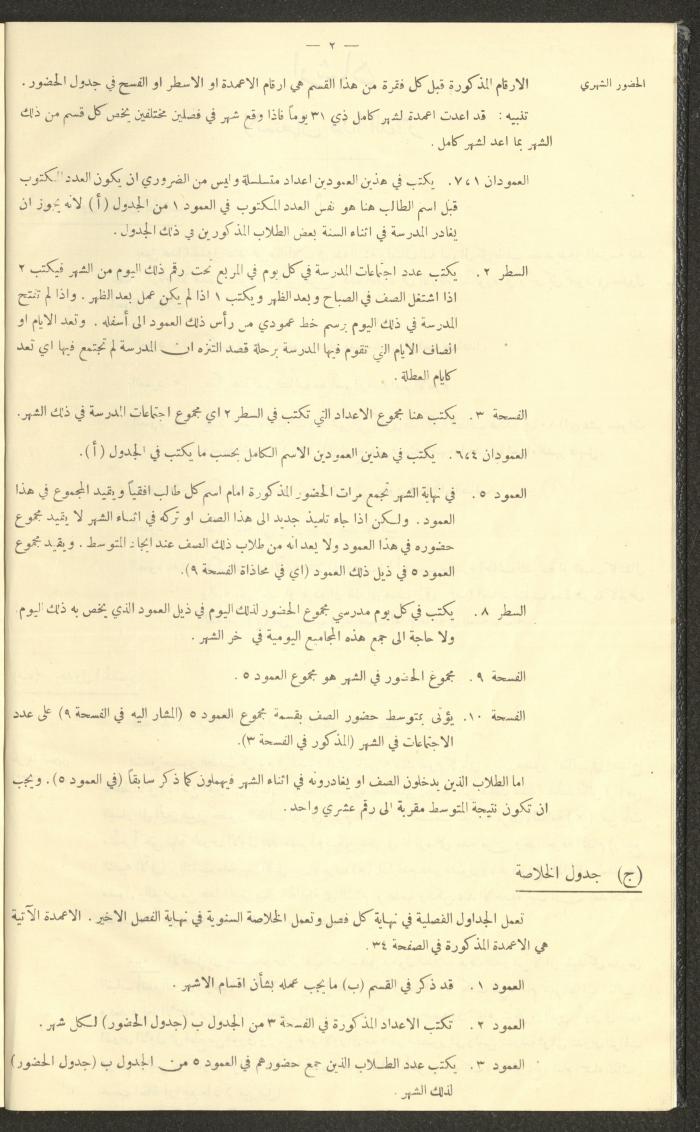 — ٢ —
الحضور الشهري
الارقام المذكورة قبل كل فقرة من هذا القسم هي ارقام الاعمدة او الاسطر او الفسح في جدول الحضور .
تنبيه : قد اعدت اعمدة لشهر كامل ذي ٣١ يوماً فاذا وقع شهر في فصلين مختلفين يخص كل قسم من ذلك
الشهر بما اعد لشهر كامل .
العمودان ٧،١ . يكتب في هذين العمودين اعداد متسلسلة وليس من الضروري ان يكون العدد المكتوب
قبل اسم الطالب هنا هو نفس العدد المكتوب في العمود ١ من الجدول (أ) لانه يجوز ان
يغادر المدرسة في اثناء السنة بعض الطلاب المذكورين في ذلك الجدول .
السطر ٢ . يكتب عدد اجتماعات المدرسة في كل يوم في المربع تحت رقم ذلك اليوم من الشهر فيكتب ٢
اذا اشتغل الصف في الصباح وبعد الظهر ويكتب ١ اذا لم يكن عمل بعد الظهر . واذا لم تفتح
المدرسة في ذلك اليوم يرسم خط عمودي من رأس ذلك العمود الى أسفله . وتعد الايام او
انصاف الايام التي تقوم فيها المدرسة برحلة قصد التنزه ان المدرسة لم تجتمع فيها اي تعد
كايام العطلة .
الفسحة ٣ . يكتب هنا مجموع الاعداد التي تكتب في السطر ٢ اي مجموع اجتماعات المدرسة في ذلك الشهر.
العمودان ٦،٤ . يكتب في هذين العمودين الاسم الكامل بحسب ما يكتب في الجدول (أ).
العمود ٥ . في نهاية الشهر تجمع مرات الحضور المذكورة امام اسم كل طالب افقياً ويقيد المجموع في هذا
العمود . ولكن اذا جاء تلميذ جديد الى هذا الصف او تركه في اثناء الشهر لا يقيد مجموع
حضوره في هذا العمود ولا يعد انه من طلاب ذلك الصف عند ايجاد المتوسط . ويقيد مجموع
العمود ٥ في ذيل ذلك العمود (اي في محاذاة الفسحة ٩).
السطر ٨ . يكتب في كل يوم مدرسي مجموع الحضور لذلك اليوم في ذيل العمود الذي يخص به ذلك اليوم
ولا حاجة الى جمع هذه المجاميع اليومية في خر الشهر .
الفسحة ٩ . مجموع الحضور في الشهر هو مجموع العمود ٥ .
الفسحة ١٠ . يؤتى بمتوسط حضور الصف بقسمة مجموع العمود ٥ (المشار اليه في الفسحة ٩) على عدد
الاجتماعات في الشهر (المذكور في الفسحة ٣).
اما الطلاب الذين يدخلون الصف او يغادرونه في اثناء الشهر فيهملون كما ذكر سابقاً (في العمود ٥) . ويجب
ان تكون نتيجة المتوسط مقربة الى رقم عشري واحد .
(ج) جدول الخلاصة
تعمل الجداول الفصلية في نهاية كل فصل وتعمل الخلاصة السنوية في نهاية الفصل الاخير . الاعمدة الآتية
هي الاعمدة المذكورة في الصفحة ٣٤ .
العمود ١ . قد ذكر في القسم (ب) ما يجب عمله بشأن اقسام الاشهر .
العمود ٢ . تكتب الاعداد المذكورة في الفسحة ٣ من الجدول ب (جدول الحضور) لكل شهر .
العمود ٣ . يكتب عدد الطلاب الذين جمع حضورهم في العمود ٥ من الجدول ب (جدول الحضور)
لذلك الشهر .